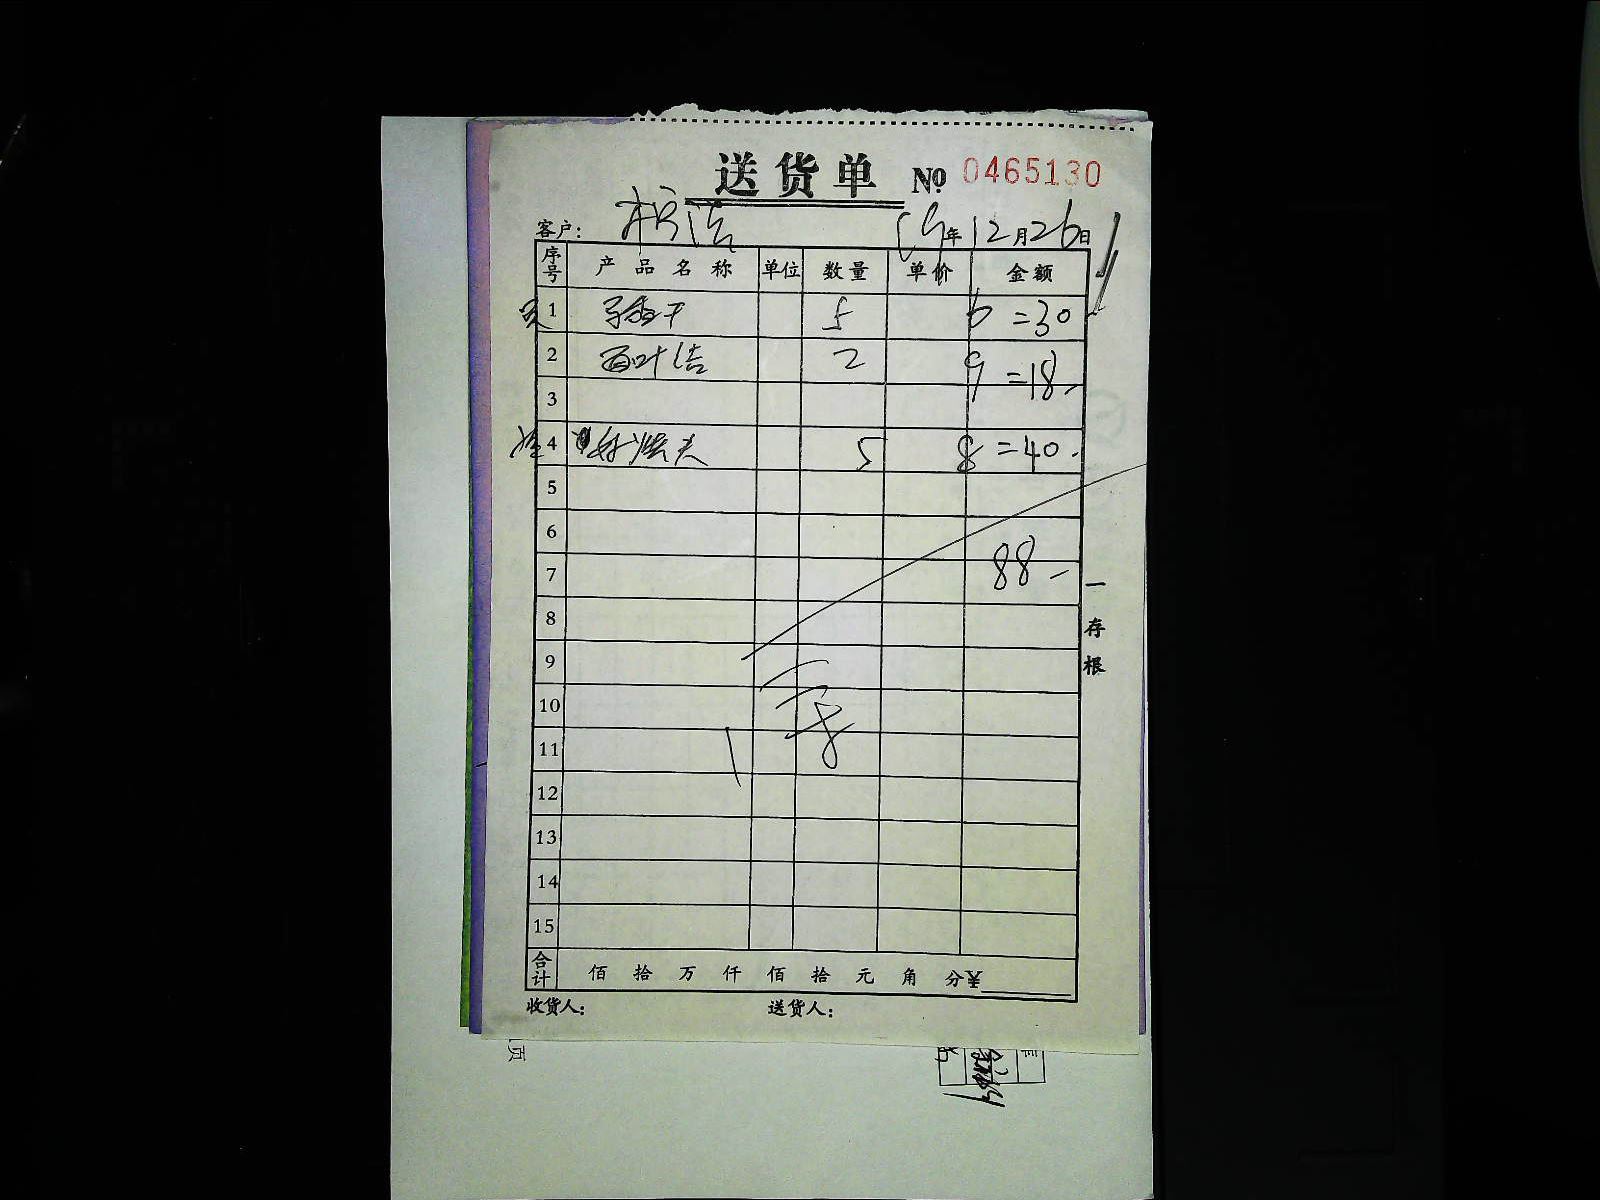 送货单 № 0465130
客户: 年12月26日
序号 产品名称 单位 数量 单价 金额
1 香干 5 6 =30
2 百叶结 2 9 =18
3
4 5 8 =40
5
6
7 88
8
9
10
11
12
13
14
15
合计 佰 拾 万 仟 佰 拾 元 角 分¥
收货人: 送货人:
一存根
页